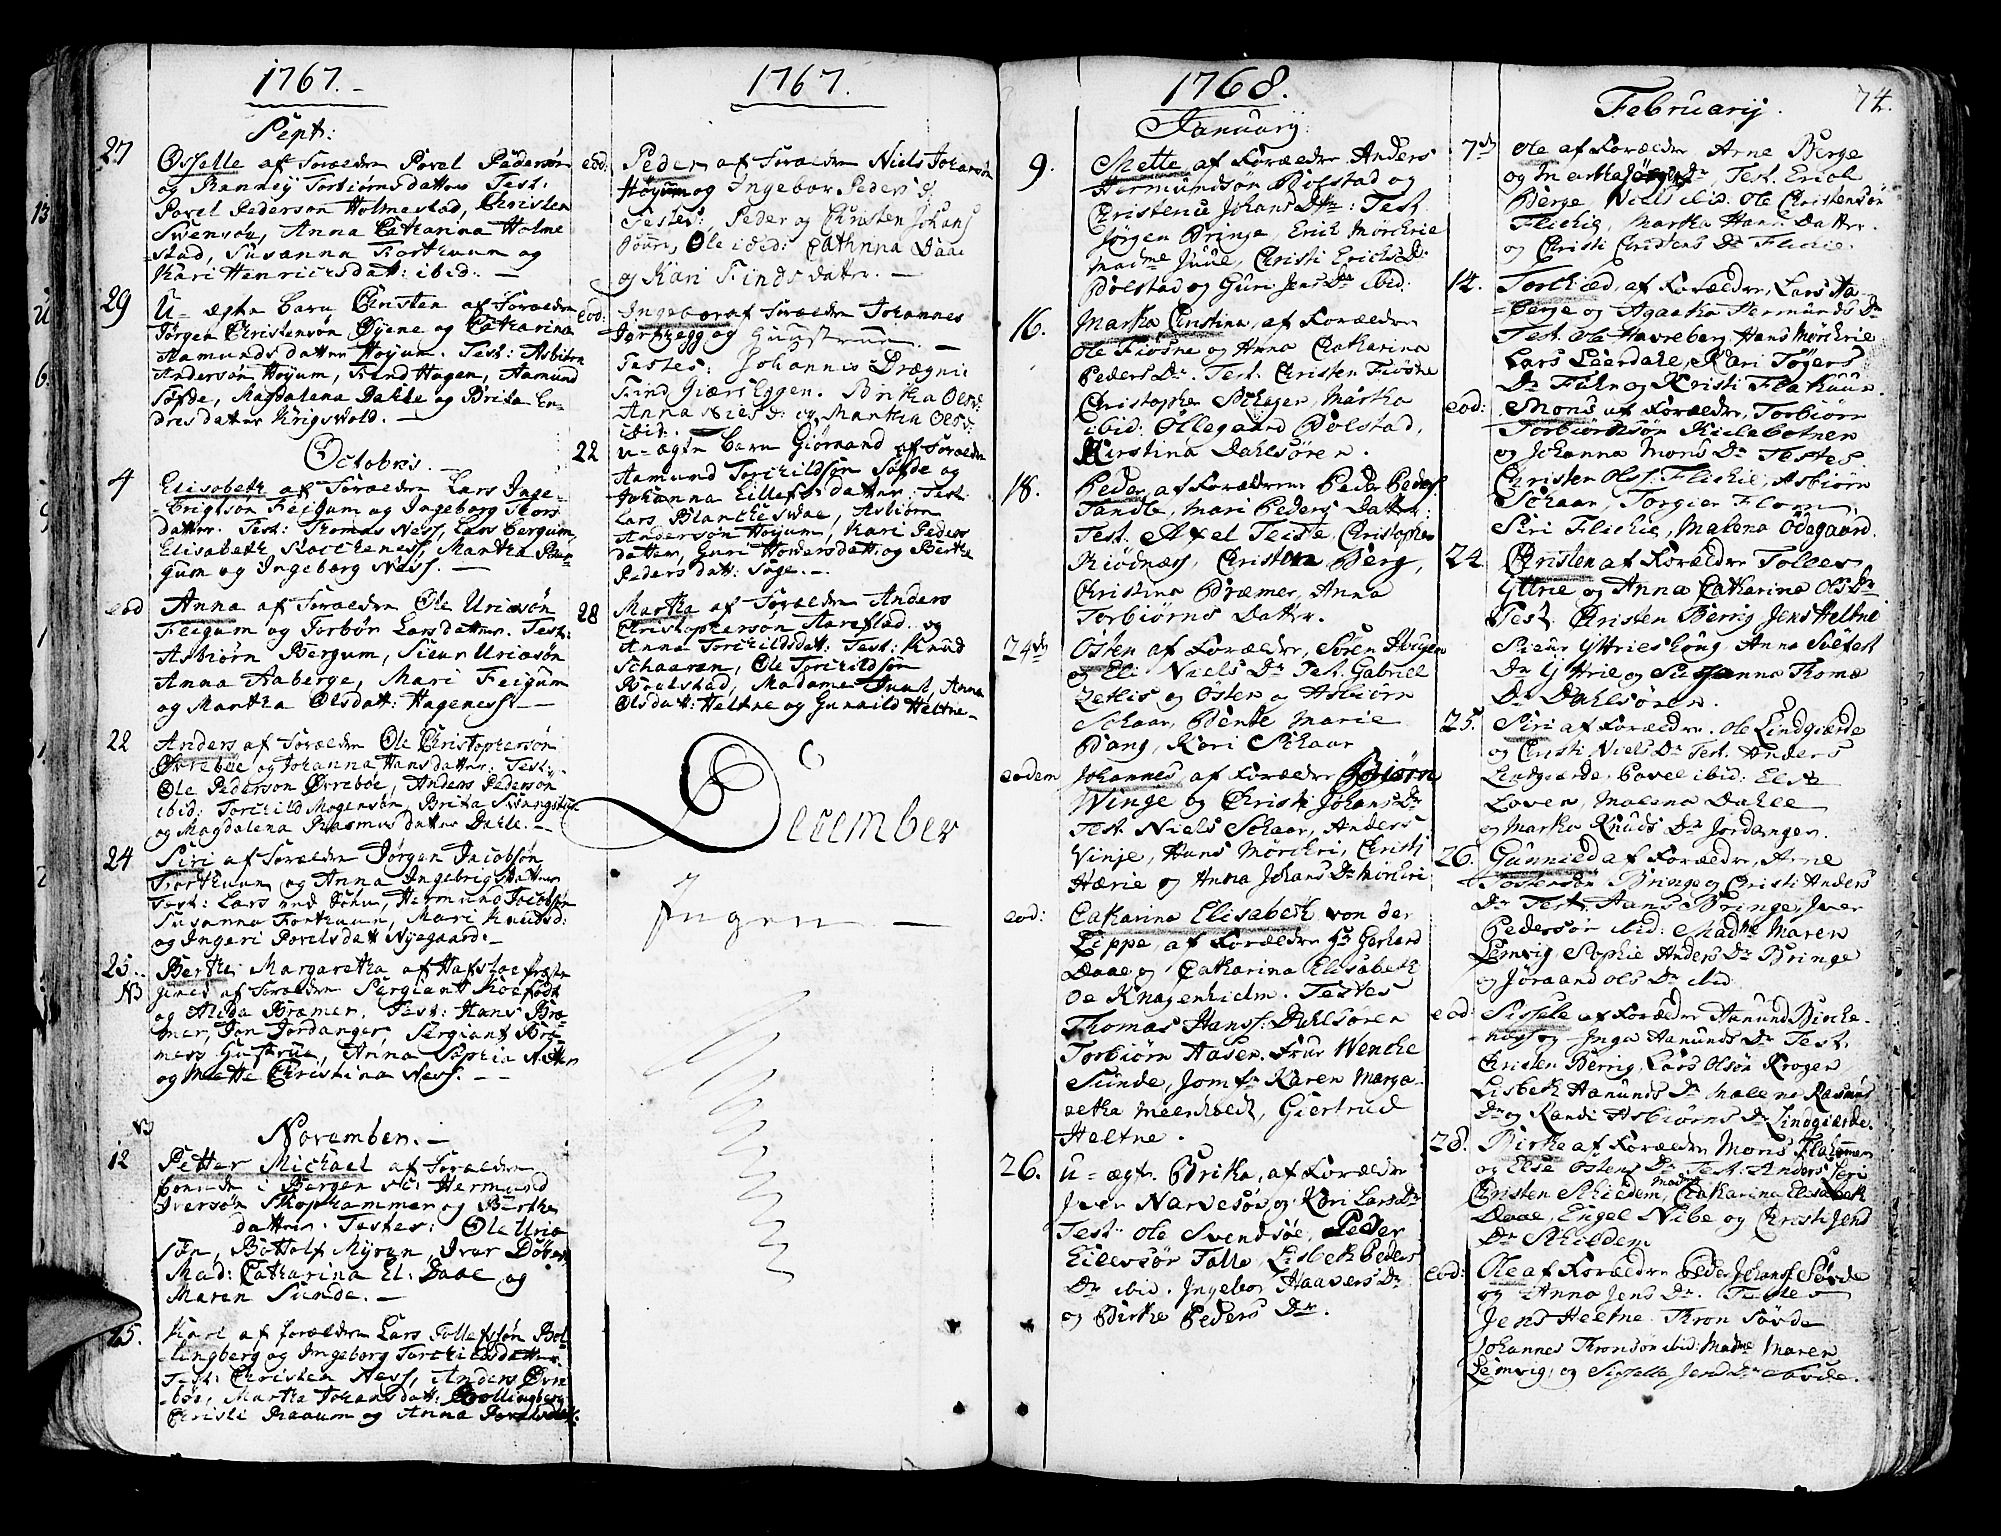 1767.
Sept:
27 Osselle af Forældre Povel Pedersøn
og Ranney Torbiørnsdatter Test:
Povel Pederson Holmestad, Christen
Swensøn, Anna Catharina Holme
stad, Susanna Forthuun og
Kari Henrichsdatt: ibid. —
29 U-ægte barn Christen af Forældre
Jørgen Christensøn Øyene og Catharina
Aamundsdatter Høyum. Test: Asbiørn
Andersøn Høyum, Find Hagen, Aamund
Søfde, Magdalena Dahle og Brita En-
dresdatter Krigsvold. —
Octobris.
4 Elisabeth af Forældre Lars Inge-
brigtsøn Feigum og Ingeborg
datter. Test: Thomas Ness, Lars Bergum,
Elisabeth Kocheness, Martha Fei-
gum og Ingeborg Ness. —
eod Anna af Forældre Ole Uriasøn
Feigum og Torbør Larsdatter. Test:
Asbiørn Bergum, Siur Uriasøn
Anna Aaberge, Mari Feigum
og Martha Olsdatt: Hageness —
22 Anders af Forældre Ole Christophersøn
Øvrebøe og Johanna Hansdatter: Test:
Ole Pederson Øvrebøe, Anders Pedersøn
ibid: Torchild Mogensøn, Brita
og Magdalena Rasmusdatter Dahle. —
24 Siri af Forældre Jørgen Jacobsøn
Forthuun og Anna Ingebrigtsdatter
Test: Lars Hermund Jacobsøn
Susanna Forthuun, Mari Knudsd:
og Ingeri Povelsdatt Nyegaard. —
25. Berthe Margaretha af Hafsloe præste
NB gield af Forældre Sergiant Koefodt
og Alida Bræmer. Test: Hans Bræ-
mer, Jan Jordanger, Sergiant Bræ-
mers Hustrue, Anna Sophia
og Mette Christina Ness. —
NB November. —
12 Petter Michael af Forældre
boende i Bergen Hermund
Iversøn Skophammer og Berthe
datter. Testes: Ole Uria
søn, Bottolf Myren, Iver Døsen
Mad: Catharina El: Daae og
Maren Sunde. —
15. Karl af forældre Lars Tollefsøn Bol-
lingberg og Ingeborg Torchildsdatter
Test: Christen Ness, Anders Øvre
bøe, Martha Johansdatt: Bollingberg
Christi Raaum og Anna Povelsdatt.
1767.
eod: Peder af Forældre Niels Johansøn
Høyum og Ingebor Peders d.
Testes: Peder og Christen Johans
sønner, Ole ibid: Cathrina Daae
og Kari Findsdatter. —
eod: Ingebor af Forældre Johannes
og Hustrue. —
Testes: Johannis Drægni
Find Giærseggen. Britha Olsd:
Anna Nielsd: og Martha Olsd:
ibid. —
22 u-ægte barn Giørnand af Forældre
Aamund Torchildsøn Søfde og
Johanna Ellefsdatter: Test:
Lars Asbiørn
Andersøn Høyum, Kari Peders
datter, Guri Hoversdatt: og Berthe
Pedersdatt: Suge. —
28 Martha af Forældre Anders
Christophersøn Harestad og
Anna Torchildsdatt: Test: Knud
Schaaren, Ole Torchildsøn
Bolstad, Madame Juul, Anna
Olsdatt: Heltne og Gunnild Heltne. —
December
Ingen —
1768.
January:
9. Mette af Forældre Anders
Hermundsøn Bolstad og
Christence Johans Dtr: Test.
Jørgen Bringe, Erich Mørchrie
Madme Juul, Christi Erichs Dr
Bolstad og Guri Jens Dr ibid:
16. Martha Christina, af Forældre
Ole Fiøsne og Anna Catharina
Peders Dr. Test. Christen Fiøsne
Christopher Schager, Martha
ibid: Ollegaard Bolstad,
Kirstina Dahlsøren.
18. Peder af Forældrene Peder Peders.
Tandb, Mari Peders Datter:
Test. Axel Teiste, Christopher
Kiødnæs, Christena Berg,
Christina Bræmer, Anna
Torbiørns Datter.
24de Østen af Forældre, Søren Haugen
og Eli Niels Dr Test. Gabriel
Zethis og Østen og Asbiørn
Schaar, Bente Marie
Bang, Kari Schaar
eodem Johannes, af Forældre Biørn
Winge og Christi Johans Dr
Test. Niels Schaar, Anders
Vinje, Hans Mørchri, Christi
Hærie og Anna Johans Dr Mørchri
eod: Catharina Elisabeth von der
Lippe, af Forældre Sr Gerhard
Daae og Catharina Elisabeth
de Knagenhielm. Testes
Thomas Hanss: Dahlsøren
Torbiørn Aasen. Frue Wenche
Sunde, Jomfr Karen Marga-
retha Meenholdt, Giertrud
Heltne.
26. u-ægte. Britha, af Forældre
Iver Narvesøn og Kari Lars Dr
Test: Ole Svendsøe, Peder
Eilevsør Talle, Lisbeth Peders
Dr ibid. Ingebor Haavers Dr
og Birthe Peders Dr.
74.
Februarij.
7de Ole af Forældre Arne Berge
og Dr, Test. Erich
Berge, Niels ibid. Ole Christensøn
Flichie, Martha Hans Datter.
og Christi Christens Dr Flichie.
14. Torchild, af Forældre, Lars Aa-
berge og Agaatha Hermunds Dr
Test. Ole Havreberg, Hans Mørchrie
Lars Leerdahl, Kari Tøgers
Dr Fehn og Kristi Flahaun.
eod: Mons af Forældre, Torbiørn
Torbiørnsøn Kielebotnen
og Johanna Mons Dr Testes
Christen Olss. Flichie, Asbiørn
Schaar, Torgier Flom,
Siri Flichie, Malena Ødegaard.
24 Christen af Forældre Tollev
Yttrie og Anna Catharina Ols Dr
Test. Christen Berrig Jens Heltne
Sieur Yttrieskong, Anna
Dr Yttrie og Susanna Thomæ
Dr Dahlsøren.
25. Siri af Forældre. Ole Lindgiærde
og Christi Niels Dr Test. Anders
Lindgiærde, Povel ibid: Else
Loven, Malena Dahle
og Martha Knuds Dr Jordanger.
26. Gunnild af Forældre, Arne
Tostensøn Bringe og Christi Anders
Dr Test. Hans Bringe, Iver
Pedersøn ibid: Madme Maren
Lemvig, Sophie Anders Dr Bringe
og Joraand Ols Dr ibid.
eod: Sissele af Forældre Aamund Birche-
houg og Inga Aamunds Dr Test.
Christen Berrig, Lars Olsøn Kroger
Lisbeth Aamunds Dr Malene Rasmus
Dr og Randi Asbiørns Dr Lindgiærde.
28. Birthe af Forældre Mons Flahammer
og Else Østens Dr Test. Anders
Christen Skieldem, Madme Catharina Elisabeth
Daae, Engel Nibe og Christi Jens
Dr Skieldem
eod: Ole af Forældre Peder Johanss Søvde
og Anna Jens Dr. Testes
Jens Heltne Thron Søvde
Johannes Thronsøn ibid: Madme Maren
Lemvig, og Sissella Jens Dr Søvde.